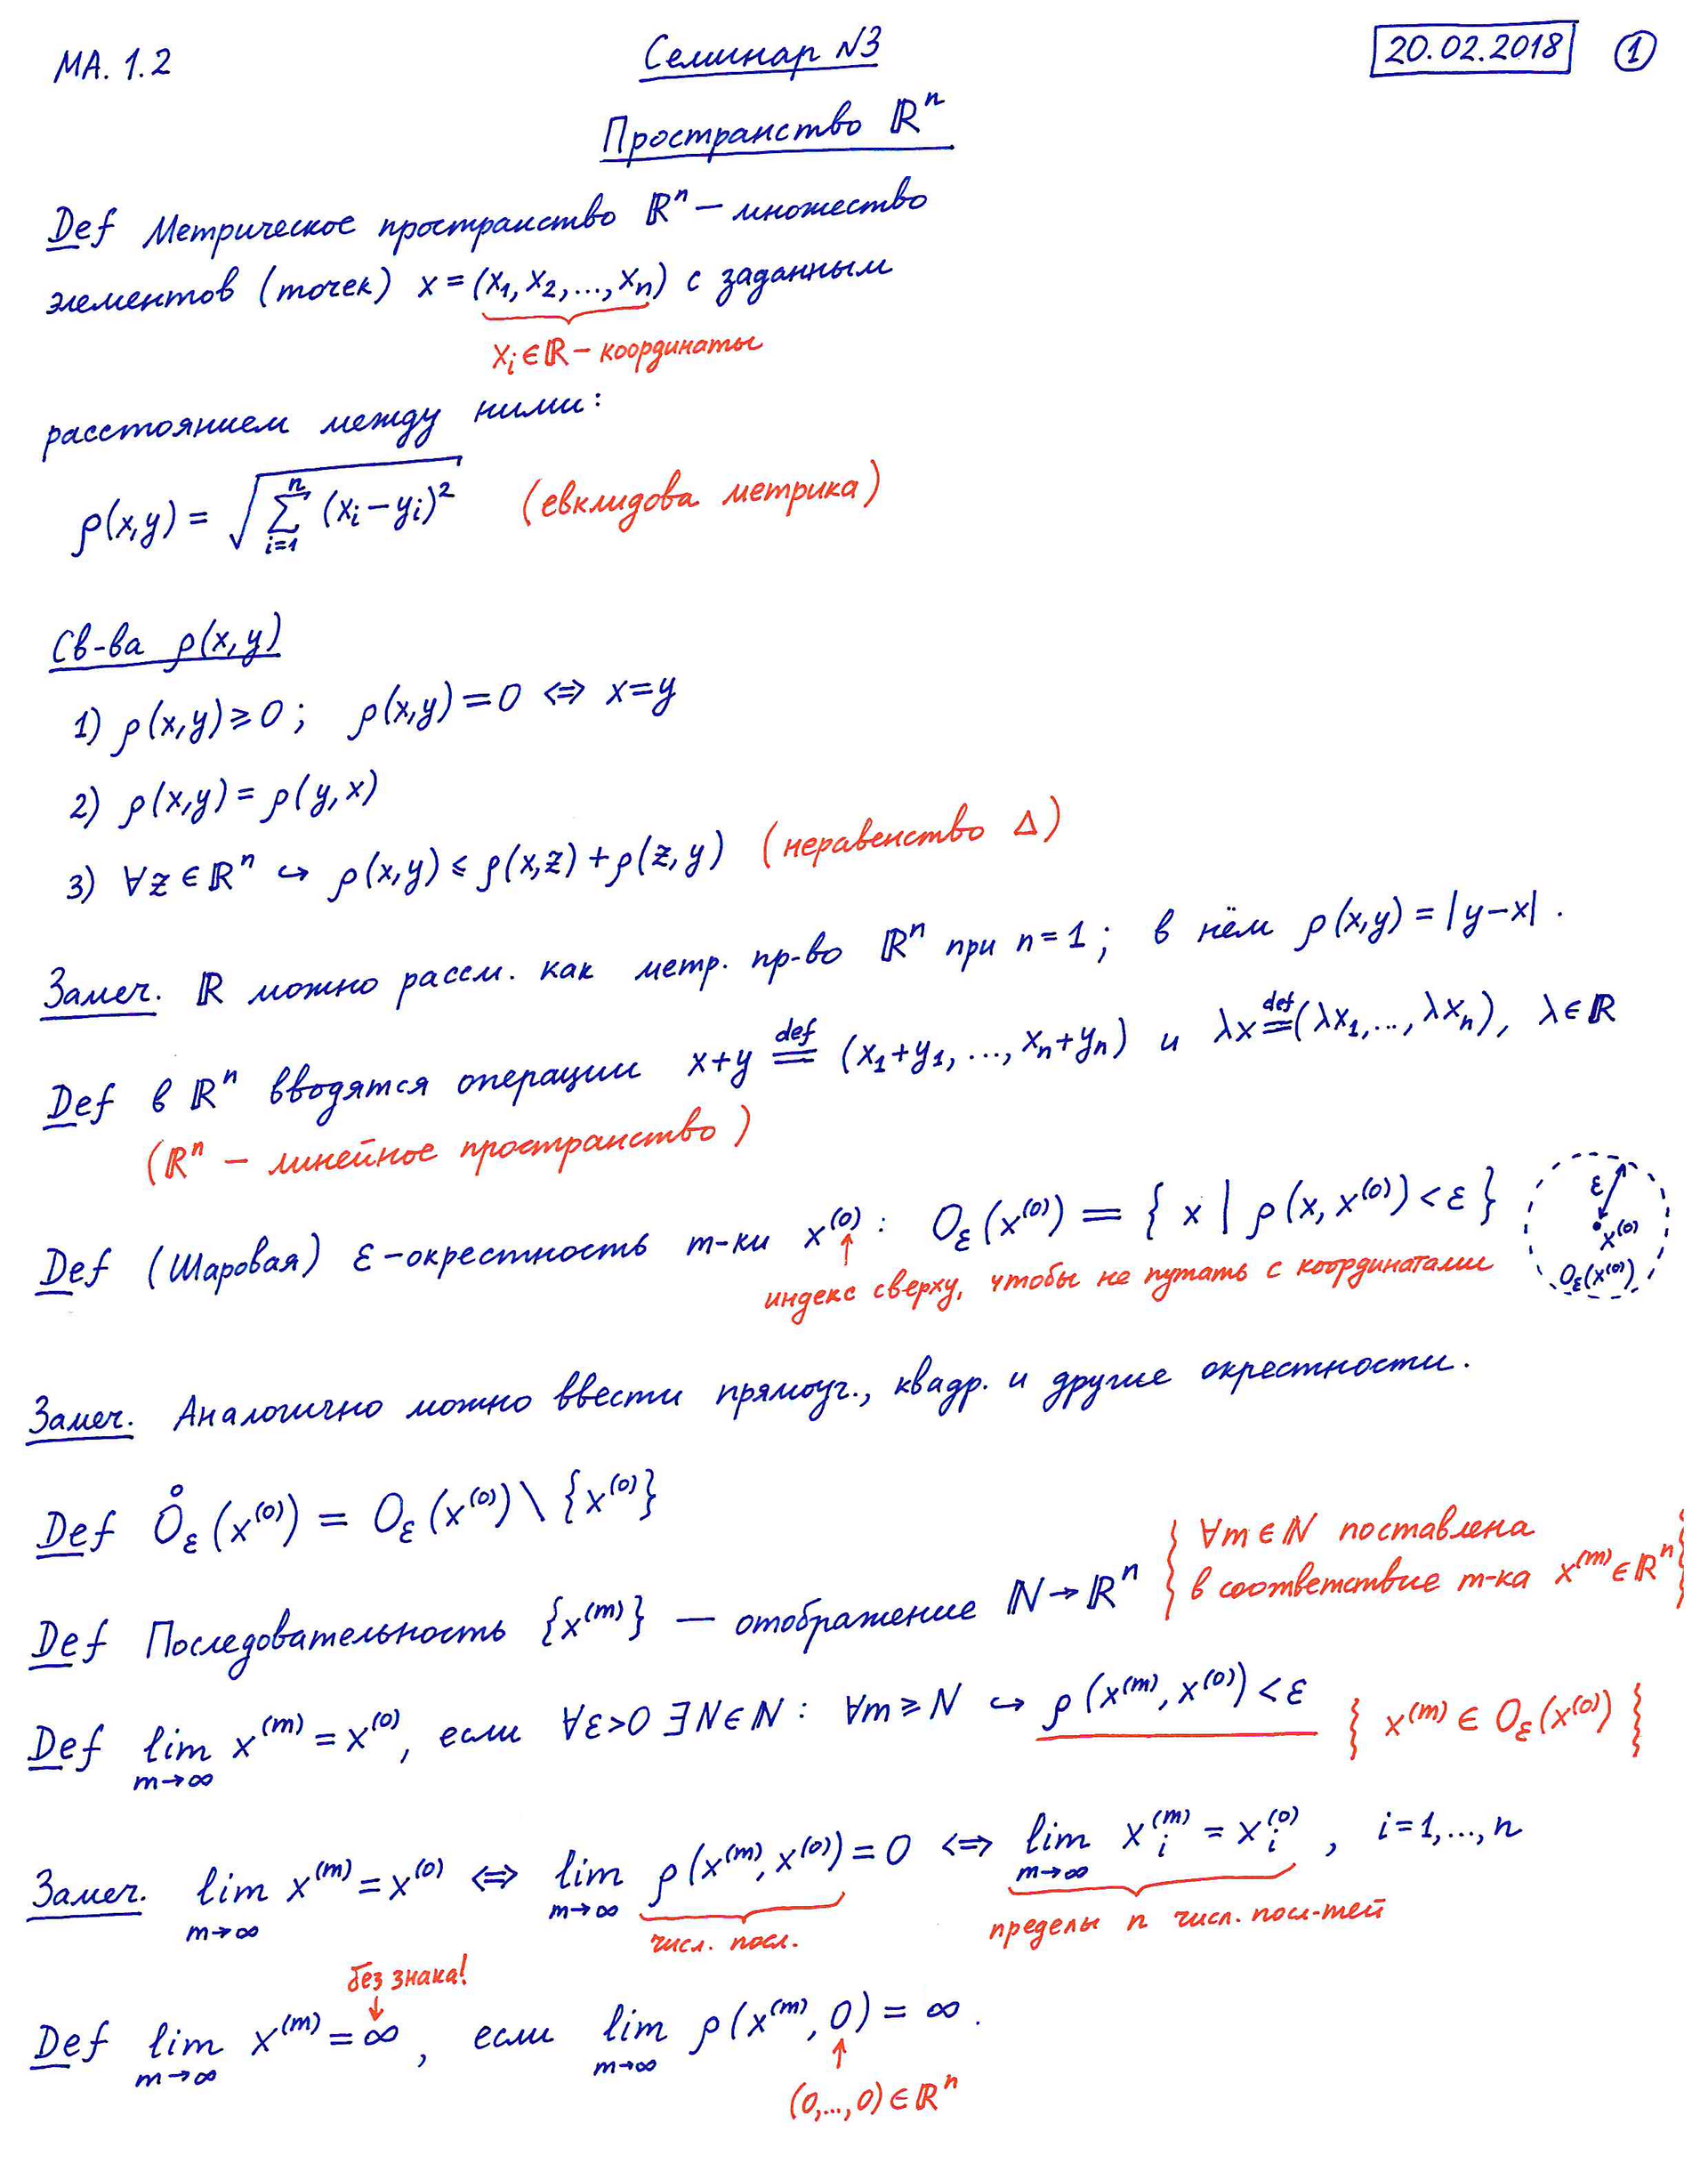 МА. 1.2
Семинар №3
20.02.2018
1
Пространство ℝⁿ
Def Метрическое пространство ℝⁿ – множество
элементов (точек) x = (x₁, x₂, ..., xₙ) с заданным
xᵢ ∈ ℝ – координаты
расстоянием между ними:
ρ(x,y) = √(∑ᵢ₌₁ⁿ (xᵢ – yᵢ)²) (евклидова метрика)
Св-ва ρ(x,y)
1) ρ(x,y) ⩾ 0 ; ρ(x,y) = 0 ⇔ x=y
2) ρ(x,y) = ρ(y,x)
3) ∀z ∈ ℝⁿ ↪ ρ(x,y) ⩽ ρ(x,z) + ρ(z,y) (неравенство Δ)
Замеч. ℝ можно рассм. как метр. пр-во ℝⁿ при n=1 ; в нём ρ(x,y) = |y–x| .
Def в ℝⁿ вводятся операции x+y ≝ (x₁+y₁, ..., xₙ+yₙ) и λx ≝ (λx₁, ..., λxₙ), λ ∈ ℝ
(ℝⁿ – линейное пространство)
Def (Шаровая) ε-окрестность т-ки x⁽⁰⁾ : O_ε(x⁽⁰⁾) = { x | ρ(x, x⁽⁰⁾) < ε }
индекс сверху, чтобы не путать с координатами
ε
x⁽⁰⁾
O_ε(x⁽⁰⁾)
Замеч. Аналогично можно ввести прямоуг., квадр. и другие окрестности.
Def O̊_ε(x⁽⁰⁾) = O_ε(x⁽⁰⁾) \ {x⁽⁰⁾}
Def Последовательность {x⁽ᵐ⁾} — отображение ℕ → ℝⁿ
∀m ∈ ℕ поставлена
в соответствие т-ка x⁽ᵐ⁾ ∈ ℝⁿ
Def lim_{m→∞} x⁽ᵐ⁾ = x⁽⁰⁾, если ∀ε>0 ∃N∈ℕ : ∀m ⩾ N ↪ ρ(x⁽ᵐ⁾, x⁽⁰⁾) < ε { x⁽ᵐ⁾ ∈ O_ε(x⁽⁰⁾) }
Замеч. lim_{m→∞} x⁽ᵐ⁾ = x⁽⁰⁾ ⇔ lim_{m→∞} ρ(x⁽ᵐ⁾, x⁽⁰⁾) = 0 ⇔ lim_{m→∞} xᵢ⁽ᵐ⁾ = xᵢ⁽⁰⁾ , i=1,...,n
числ. посл.
пределы n числ. посл-тей
без знака!
Def lim_{m→∞} x⁽ᵐ⁾ = ∞ , если lim_{m→∞} ρ(x⁽ᵐ⁾, 0) = ∞ .
(0,...,0) ∈ ℝⁿ